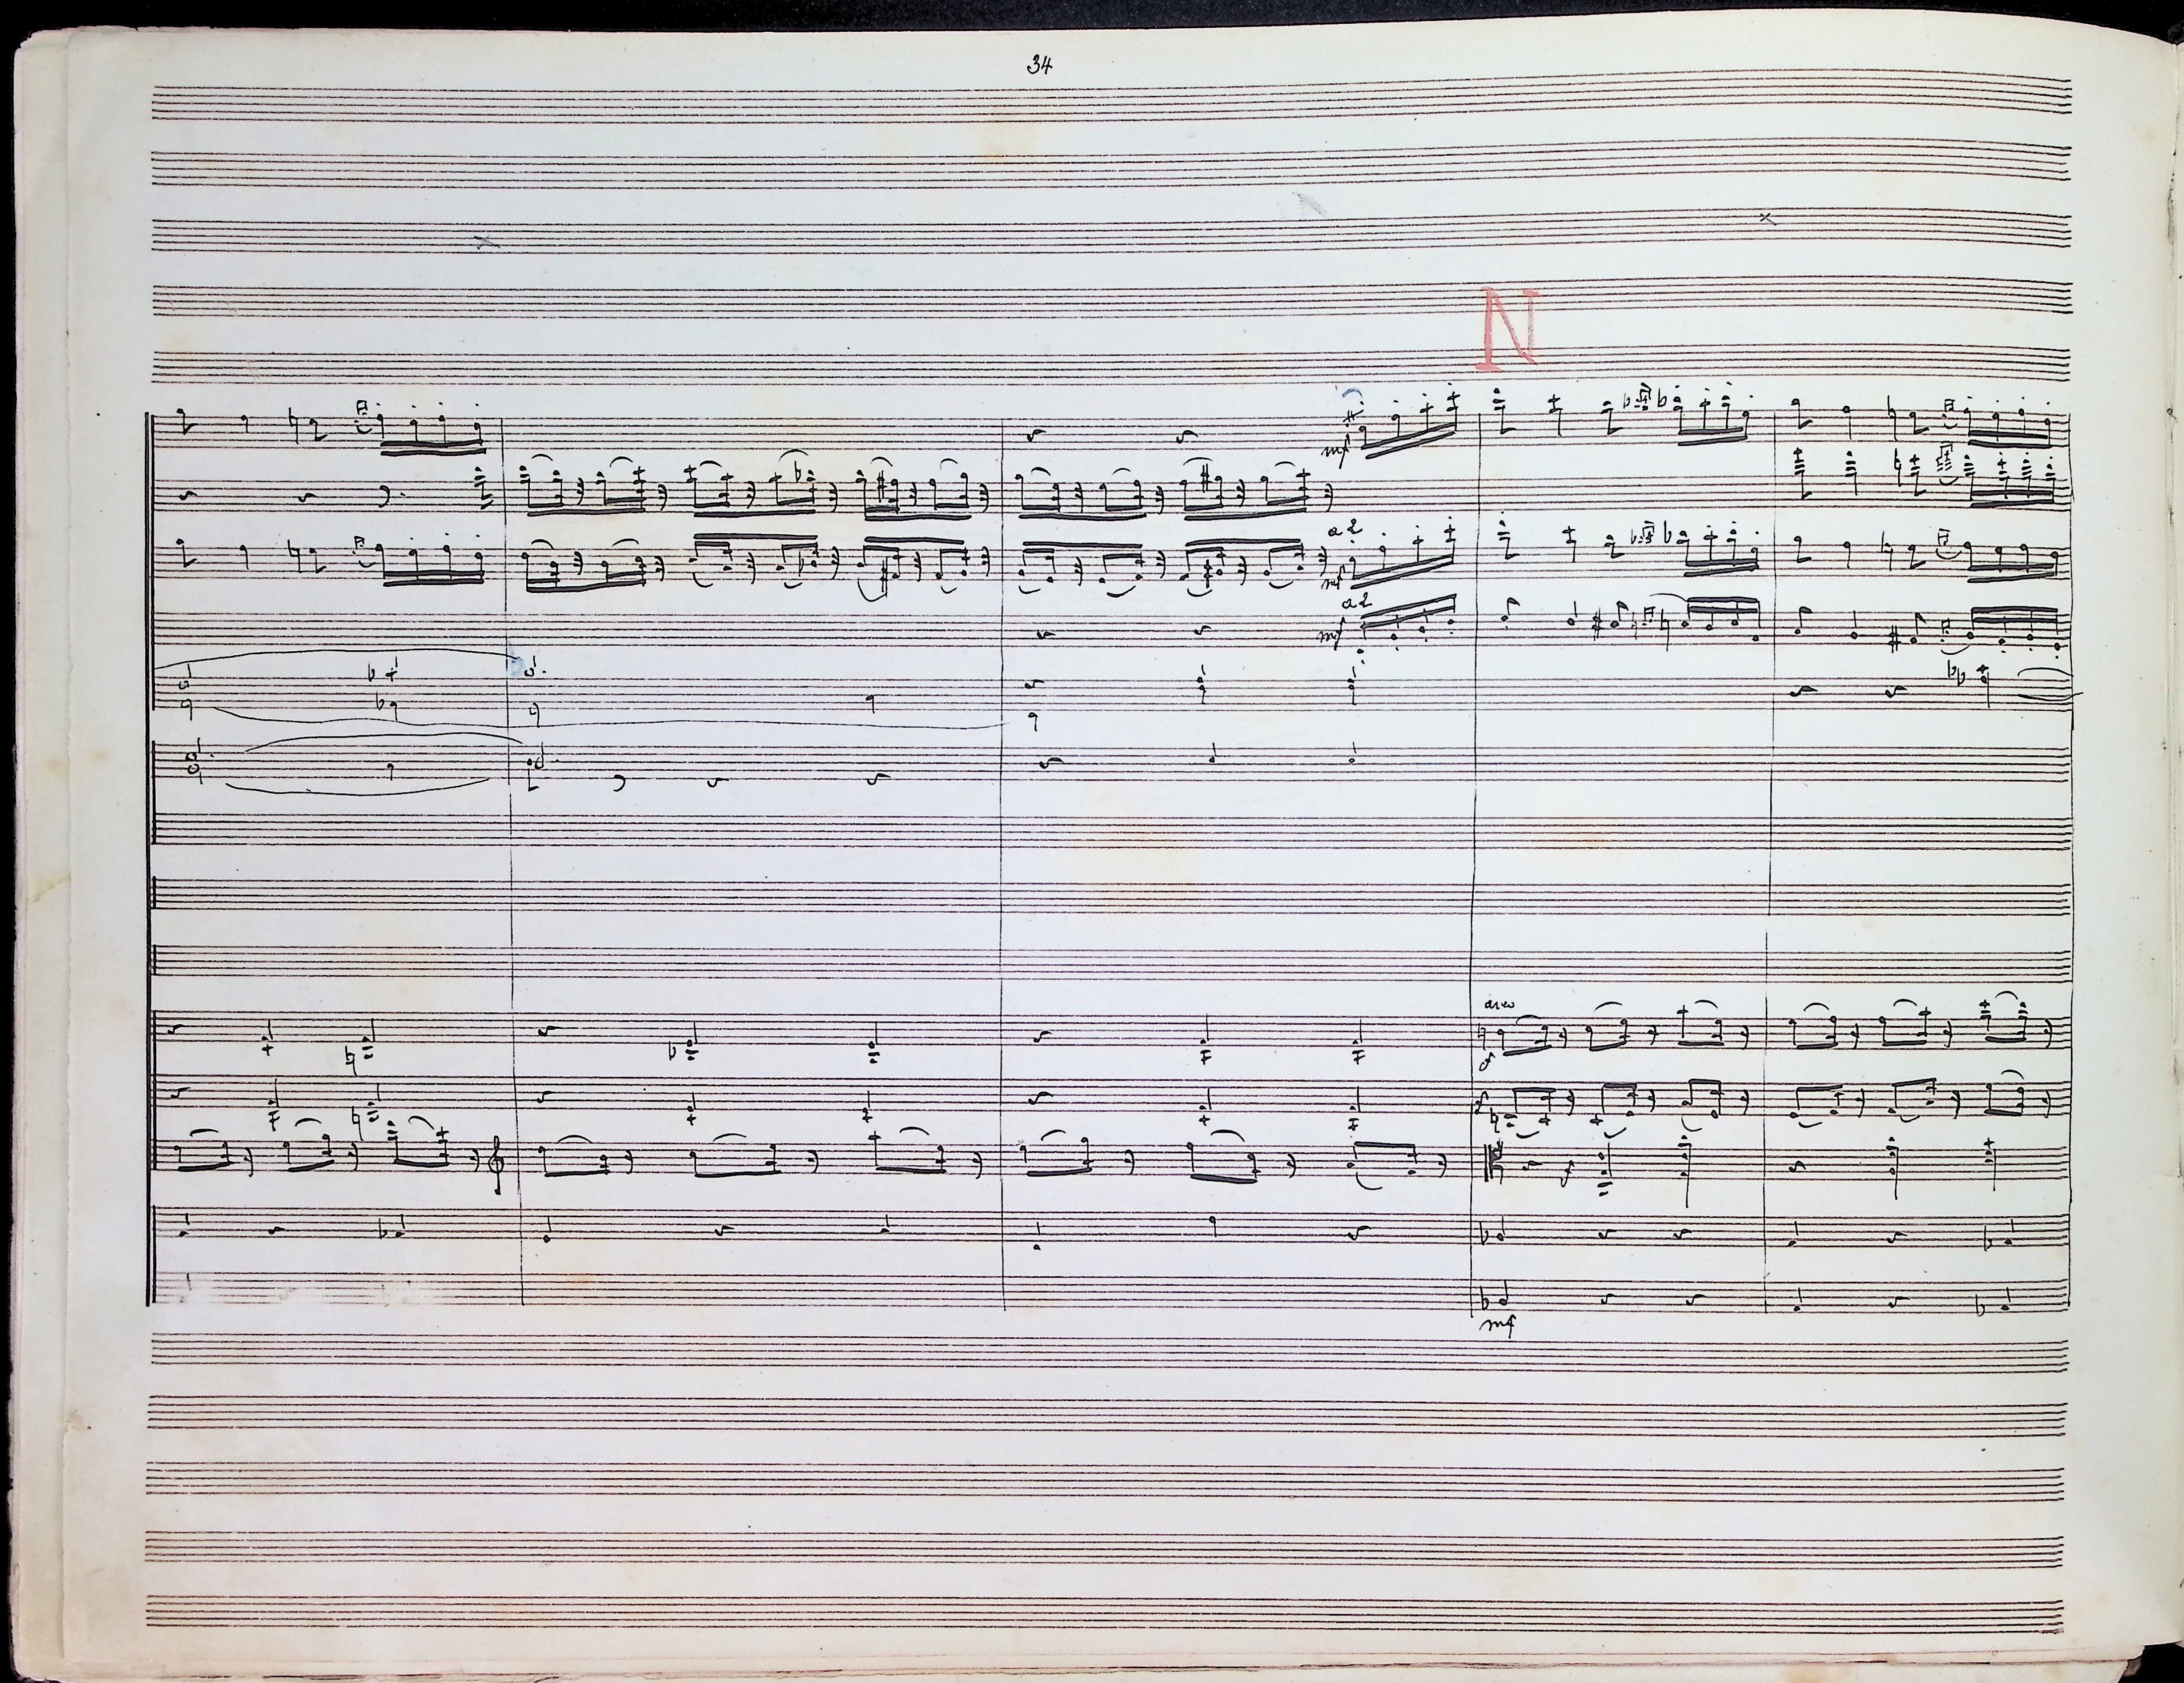 34
N
mf
a 2
mf
a 2
mf
arco
f
f
f
mf